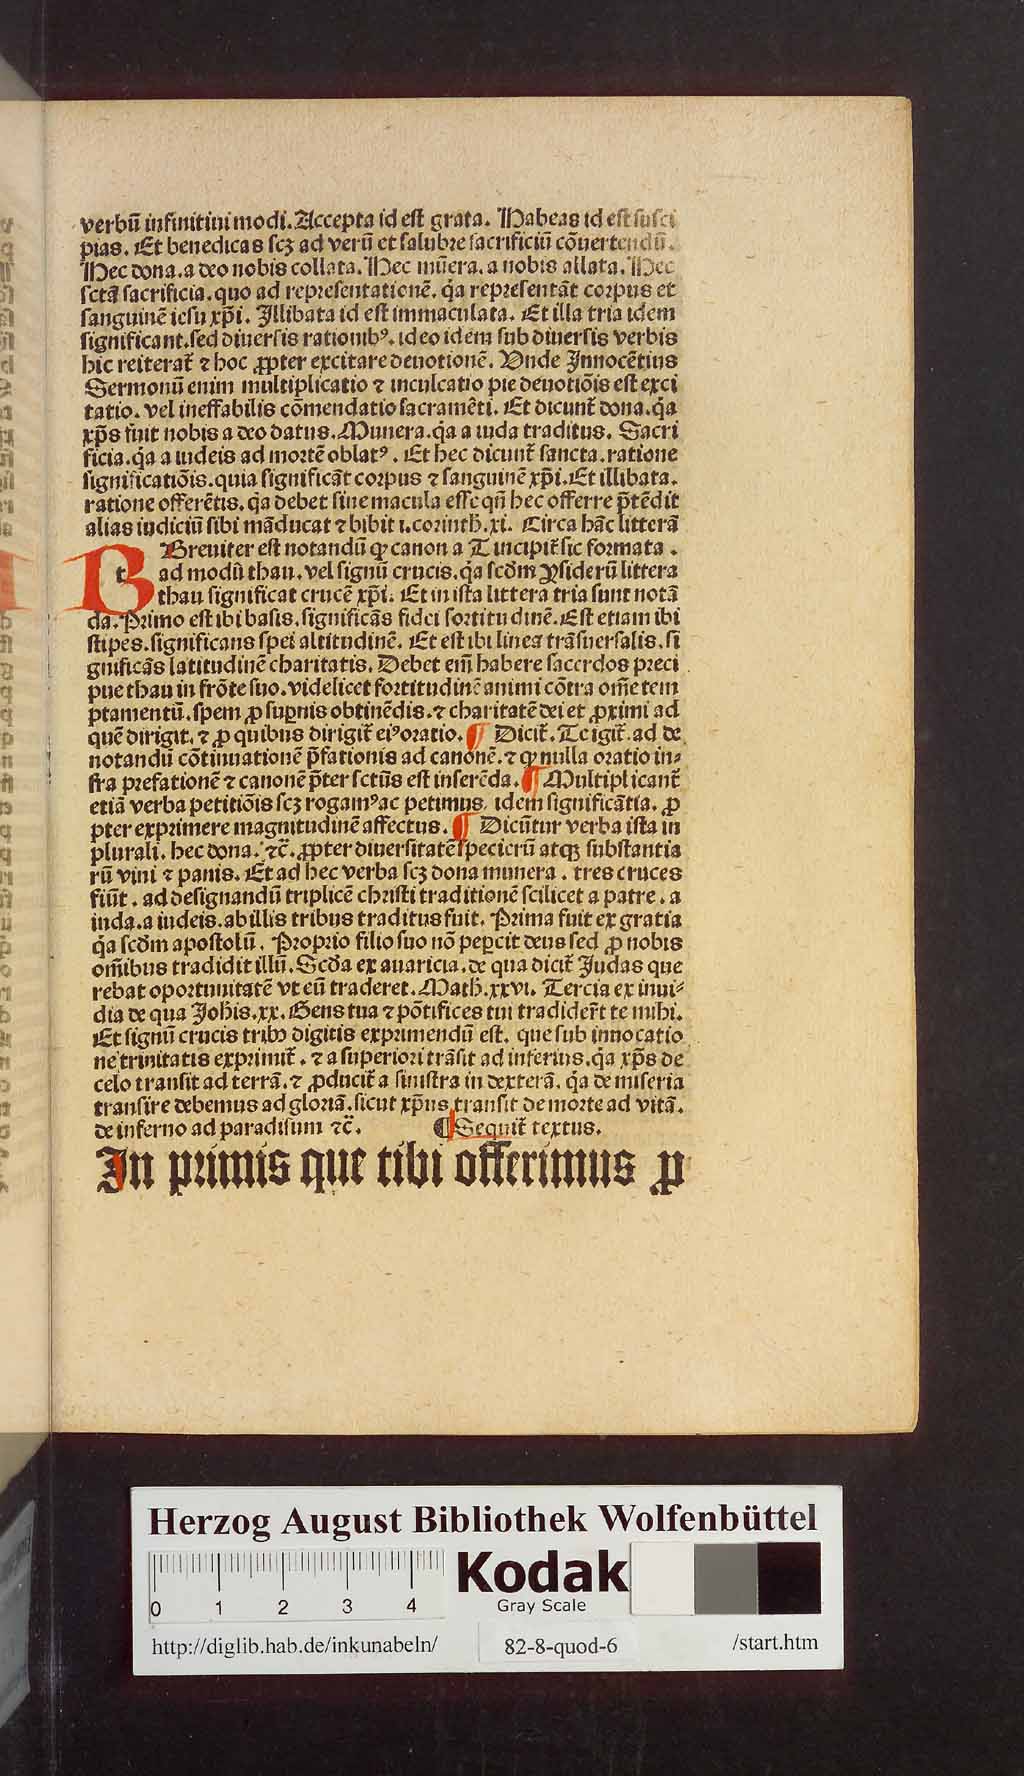 verbū infinitiui modi. Accepta id est grata. Habeas id est susci
pias. Et benedicas scꝫ ad verū et salubre sacrificiū cōuertendū.
Hec dona. a deo nobis collata. Hec mūera. a nobis allata. Hec
sctā sacrificia. quo ad representationē. q̄a representāt corpus et
sanguinē iesu xp̄i. Illibata id est immaculata. Et illa tria idem
significant. sed diuersis rationibꝰ. ideo idem sub diuersis verbis
hic reiterat̃ ⁊ hoc ꝓpter excitare deuotionē. Vnde Innocētius
Sermonū enim multiplicatio ⁊ inculcatio pie deuotiōis est exci
tatio. vel ineffabilis cōmendatio sacramēti. Et dicunt̃ dona. q̄a
xp̄s fuit nobis a deo datus. Munera. q̄a a iuda traditus. Sacri
ficia. q̄a a iudeis ad mortē oblatꝰ. Et hec dicunt̃ sancta. ratione
significatiōis. quia significāt corpus ⁊ sanguinē xp̄i. Et illibata.
ratione offerētis. q̄a debet sine macula esse qn̄ hec offerre p̄tēdit
alias iudiciū sibi māducat ⁊ bibit i. corinth̄. xi. Circa hāc litterā
tBreuiter est notandū ꝙ canon a T incipit̃ sic formata.
ad modū thau. vel signū crucis. q̄a scd̄m ꝯsiderū littera
thau significat crucē xp̄i. Et in ista littera tria sunt notā
da. Primo est ibi basis. significās fidei fortitudinē. Est etiam ibi
stipes. significans spei altitudinē. Et est ibi linea trāsuersalis. si
gnificās latitudinē charitatis. Debet em̄ habere sacerdos preci
pue thau in frōte suo. videlicet fortitudinē animi cōtra om̄e tem
ptamentū. spem ꝓ suꝑnis obtinēdis. ⁊ charitatē dei et ꝓximi ad
quē dirigit. ⁊ ꝓ quibus dirigit̃ eiꝰ oratio. ¶ Dicit̃. Te igit̃. ad de
notandū cōtinuationē p̄fationis ad canonē. ⁊ ꝙ nulla oratio in⸗
fra prefationē ⁊ canonē p̄ter sctūs est inserēda. ¶ Multiplicant̃
etiā verba petitiōis scꝫ rogamꝰ ac petimus. idem significātia. ꝓ
pter exprimere magnitudinē affectus. ¶ Dicūtur verba ista in
plurali. hec dona. ⁊c̄. ꝓpter diuersitatē specierū atqꝫ substantia
rū vini ⁊ panis. Et ad hec verba scꝫ dona munera. tres cruces
fiūt. ad designandū triplicē christi traditionē scilicet a patre. a
iuda. a iudeis. ab illis tribus traditus fuit. Prima fuit ex gratia
q̄a scd̄m apostolū. Proprio filio suo nō peꝑcit deus sed ꝓ nobis
om̄ibus tradidit illū. Scd̄a ex auaricia. de qua dicit̃ Judas que
rebat oportunitatē vt eū traderet. Math̄. xxvi. Tercia ex inui⸗
dia de qua Joh̄is. xx. Gens tua ⁊ pōtifices tui tradider̄t te mihi.
Et signū crucis tribꝰ digitis exprimendū est. que sub innocatio
ne trinitatis exprimit̃. ⁊ a superiori trāsit ad inferius. q̄a xp̄s de
celo transit ad terrā. ⁊ ꝓducit̃ a sinistra in dexterā. q̄a de miseria
transire debemus ad gloriā. sicut xp̄us transit de morte ad vitā.
de inferno ad paradisum ⁊c̄. ¶ Sequit̃ textus.
In primis que tibi offerimus ꝓ
Herzog August Bibliothek Wolfenbüttel
0 1 2 3 4
Kodak
Gray Scale
http://diglib.hab.de/inkunabeln/ 82-8-quod-6 /start.htm